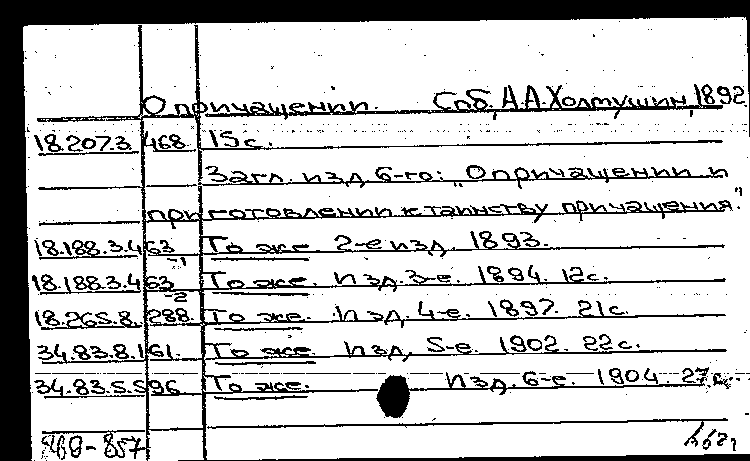 О причащении. Спб, А.А. Холмушин, 1892
18.207.3.468 15 с.
Загл. изд. 6-го: „О причащении и
приготовлении к таинству причащения."
18.188.3.463 То же. 2-е изд. 1893.
18.188.3.463-1 То же. Изд. 3-е. 1894. 12 с.
18.265.8.288-2 То же. Изд. 4-е. 1897. 21 с.
34.83.8.161. То же. Изд. 5-е. 1902. 22 с.
34.83.5.596 То же. Изд. 6-е. 1904. 27 с.